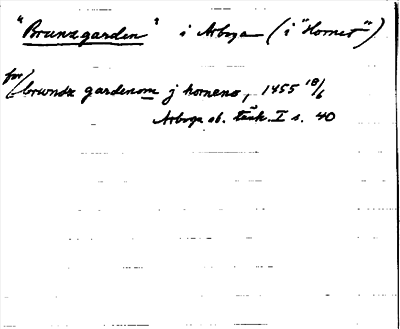 "Brunzgarden" i Arboga (i "Hornet")
for/ brwndz gardenom j horneno, 1455 18/6
Arboga sb. tänk. I s. 40